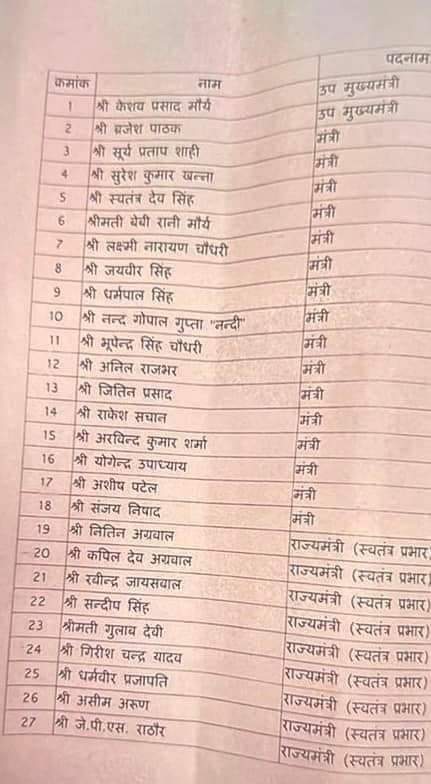 कमांक नाम पदनाम
1 श्री केशव प्रसाद मौर्य उप मुख्यमंत्री
2 श्री ब्रजेश पाठक उप मुख्यमंत्री
3 श्री सूर्य प्रताप शाही मंत्री
4 श्री सुरेश कुमार खन्ना मंत्री
5 श्री स्वतंत्र देव सिंह मंत्री
6 श्रीमती बेबी रानी मौर्य मंत्री
7 श्री लक्ष्मी नारायण चौधरी मंत्री
8 श्री जयवीर सिंह मंत्री
9 श्री धर्मपाल सिंह मंत्री
10 श्री नन्द गोपाल गुप्ता "नन्दी" मंत्री
11 श्री भूपेन्द्र सिंह चौधरी मंत्री
12 श्री अनिल राजभर मंत्री
13 श्री जितिन प्रसाद मंत्री
14 श्री राकेश सचान मंत्री
15 श्री अरविन्द कुमार शर्मा मंत्री
16 श्री योगेन्द्र उपाध्याय मंत्री
17 श्री अशीष पटेल मंत्री
18 श्री संजय निषाद मंत्री
19 श्री नितिन अग्रवाल राज्यमंत्री (स्वतंत्र प्रभार)
20 श्री कपिल देव अग्रवाल राज्यमंत्री (स्वतंत्र प्रभार)
21 श्री रवीन्द्र जायसवाल राज्यमंत्री (स्वतंत्र प्रभार)
22 श्री सन्दीप सिंह राज्यमंत्री (स्वतंत्र प्रभार)
23 श्रीमती गुलाब देवी राज्यमंत्री (स्वतंत्र प्रभार)
24 श्री गिरीश चन्द्र यादव राज्यमंत्री (स्वतंत्र प्रभार)
25 श्री धर्मवीर प्रजापति राज्यमंत्री (स्वतंत्र प्रभार)
26 श्री असीम अरूण राज्यमंत्री (स्वतंत्र प्रभार)
27 श्री जे.पी.एस. राठौर राज्यमंत्री (स्वतंत्र प्रभार)